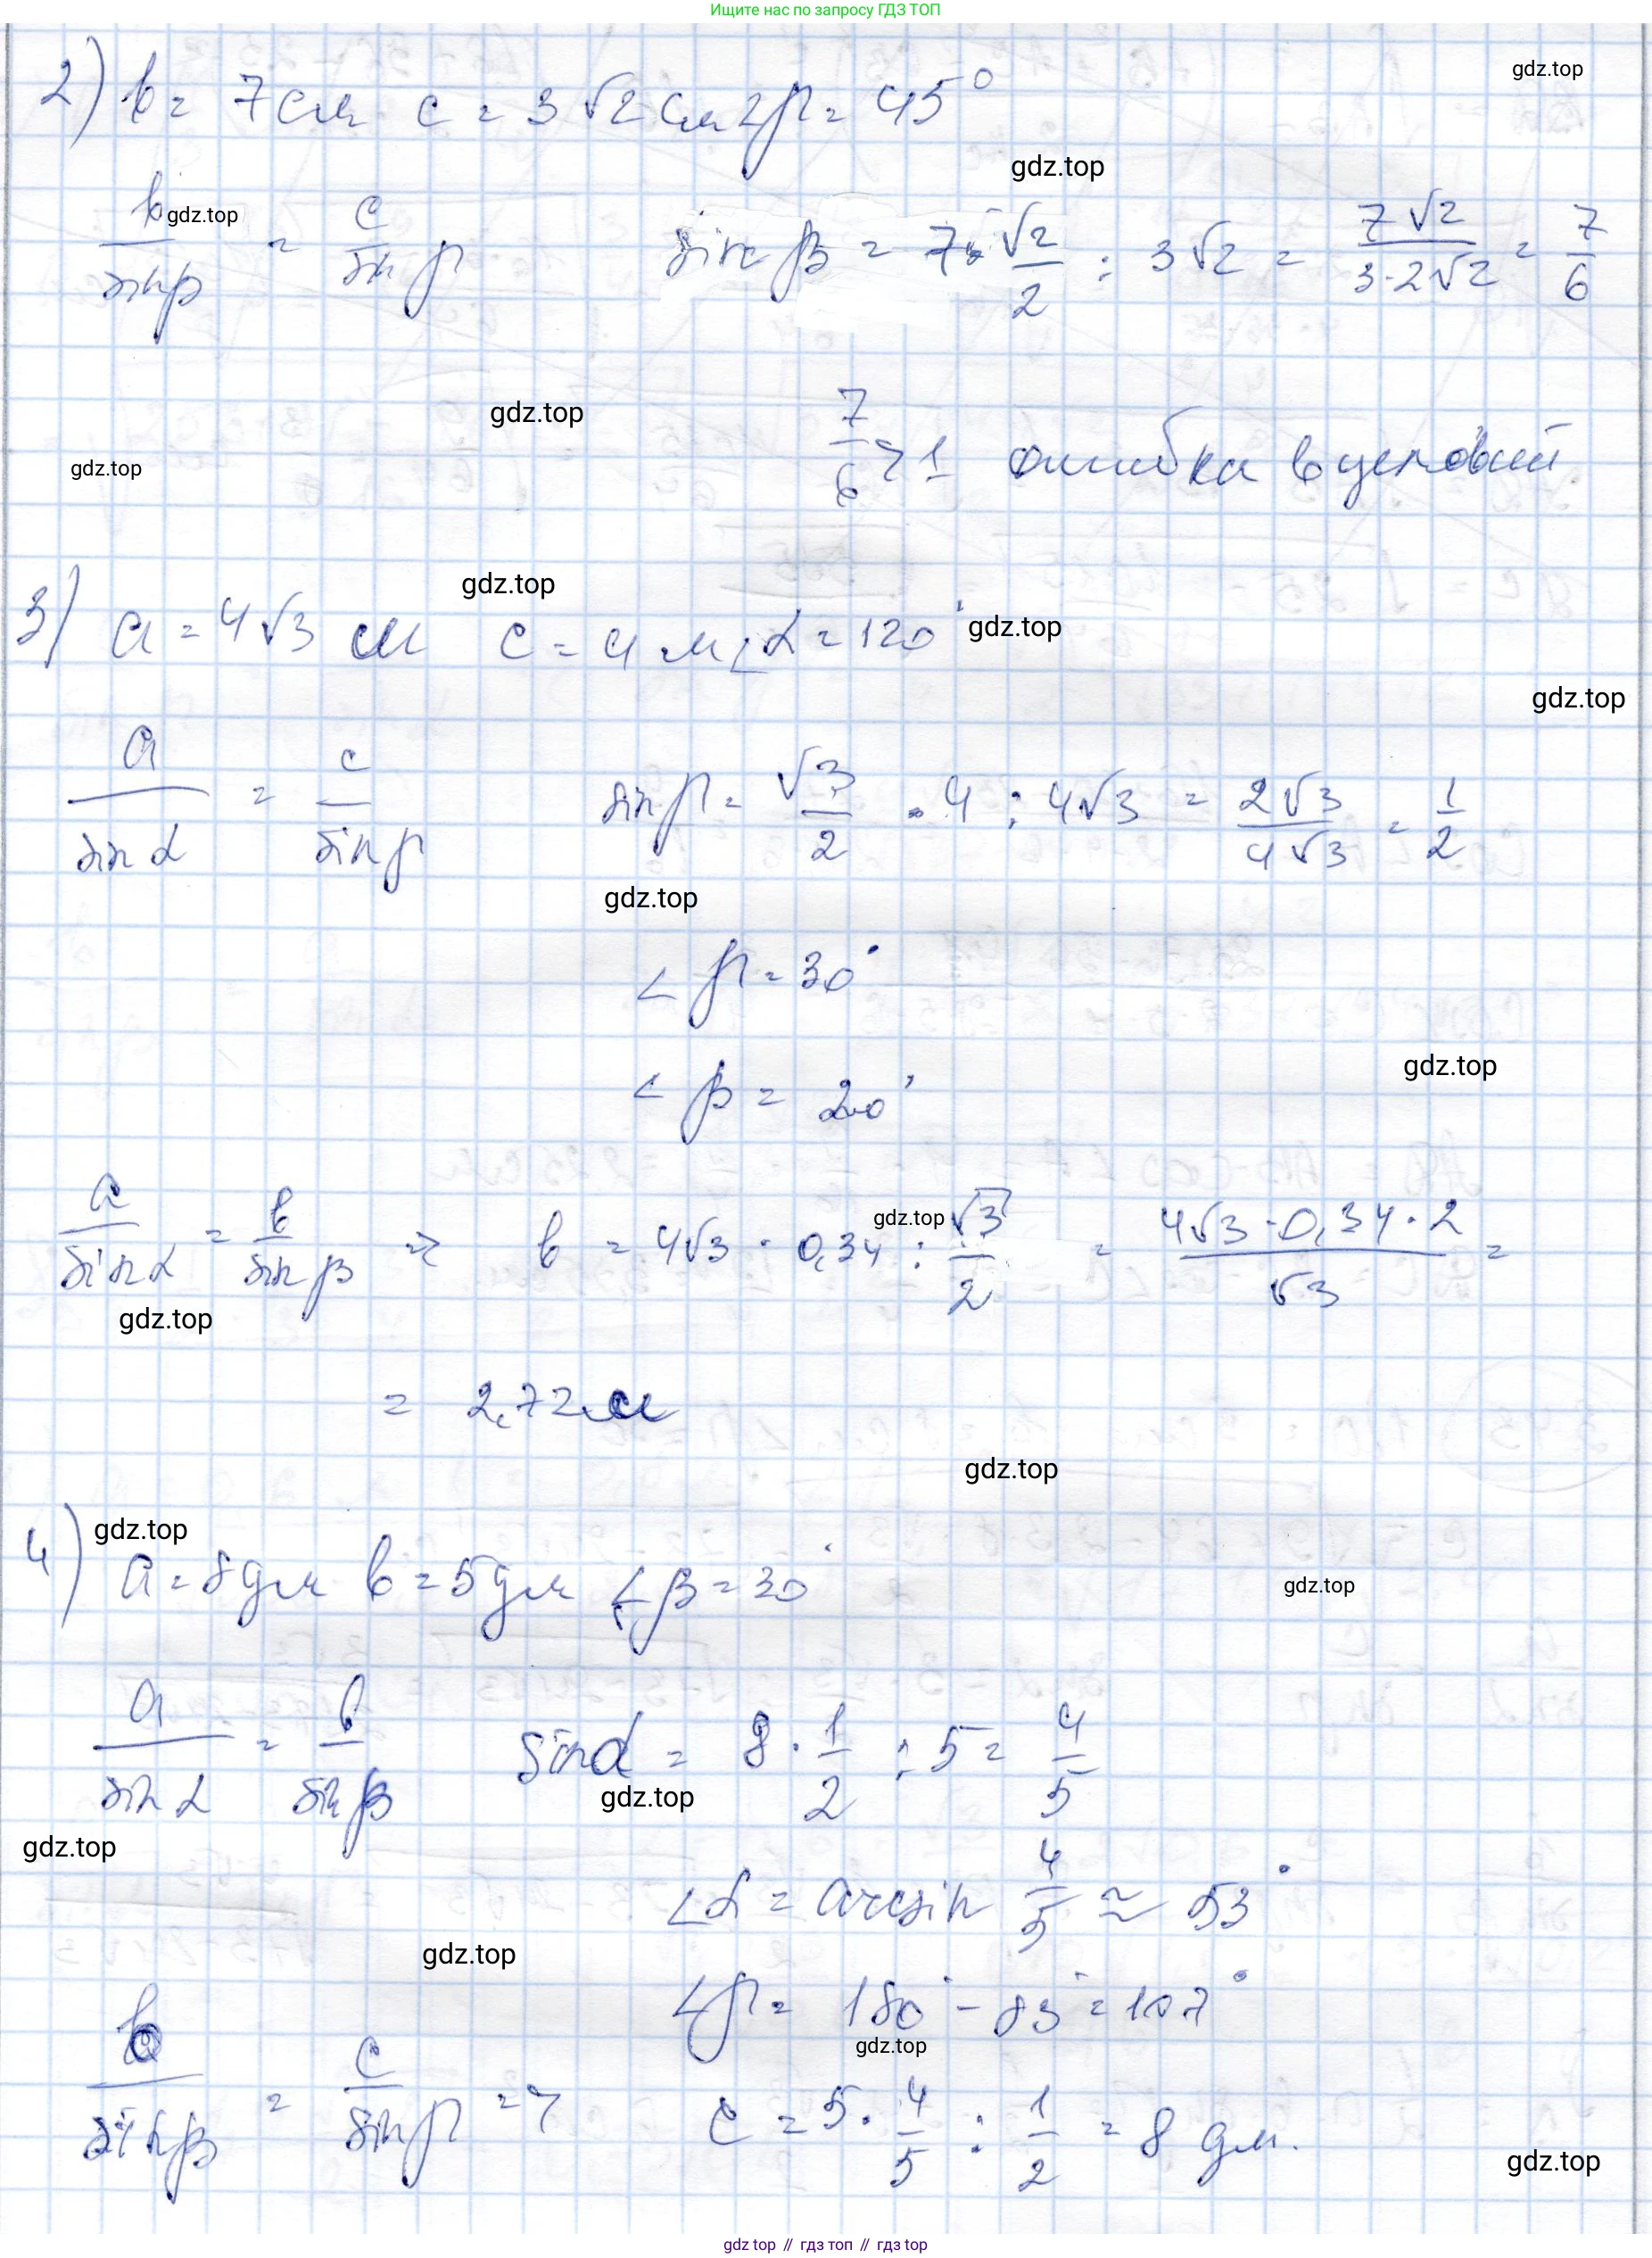 Ищите нас по запросу ГДЗ ТОП
gdz.top
2) b = 7 см c = 3√2 см ∠γ = 45°
gdz.top
b/sin β = c/sin γ sin β = 7·√2/2 : 3√2 = 7√2/3·2√2 = 7/6
gdz.top
gdz.top
7/6 > 1 ошибка в условии
gdz.top
gdz.top
3) a = 4√3 м c = 4 м ∠α = 120°
gdz.top
gdz.top
a/sin α = c/sin γ sin γ = √3/2 · 4 : 4√3 = 2√3/4√3 = 1/2
gdz.top
∠γ = 30°
gdz.top
∠β = 20°
a/sin α = b/sin β => b = 4√3 · 0,34 : √3/2 = 4√3·0,34·2/√3 =
gdz.top
gdz.top
= 2,72 м
gdz.top
gdz.top
4) a = 8 дм b = 5 дм ∠β = 30°
gdz.top
a/sin α = b/sin β sin α = 8 · 1/2 : 5 = 4/5
gdz.top
gdz.top
∠α = arcsin 4/5 ≈ 53°
gdz.top
∠γ = 180° - 83° = 107°
gdz.top
b/sin β = c/sin γ => c = 5 · 4/5 : 1/2 = 8 дм.
gdz.top
gdz top // гдз топ // гдз top